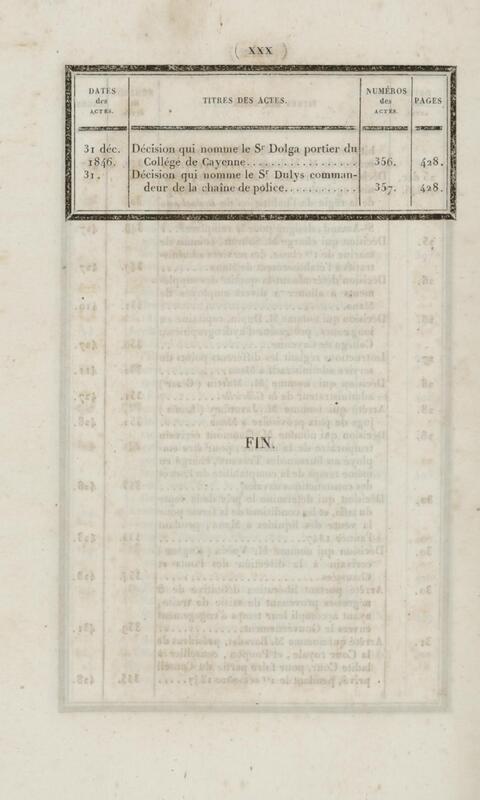 ( XXX )
DATES
des
ACTES.
TITRES DES ACTES.
NUMÉROS
des
ACTES.
PAGES
31 déc. Décision qui nomme le Sr Dolga portier du
1846. Collége de Cayenne.................. 356. 428.
31. Décision qui nomme le Sr Dulys comman-
deur de la chaîne de police............ 357. 428.
FIN.